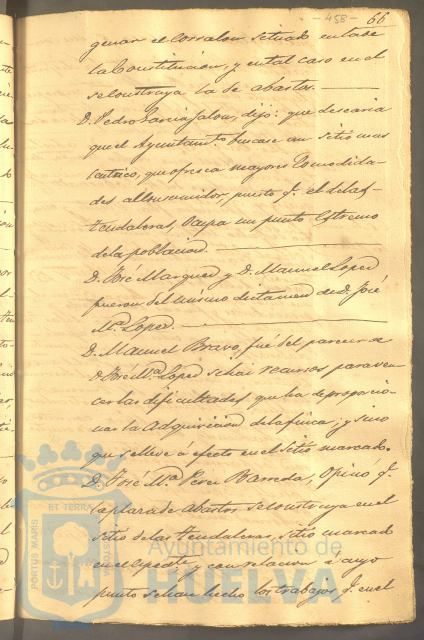 -458- 66
genar el corralon situado en la de
la Constitucion, y en tal caso en el
se construya la de abastos.
D. Pedro Garcia Jalon, dijo: que desearia
que el Ayuntamto. buscase un sitio mas
centrico, que ofresca mayores comodida-
des al consumidor, puesto q. el de las
tendaleras, ocupa un punto estremo
de la poblacion.
D. José Marquez y D. Manuel Lopez
fueron del mismo dictamen de D. José
Ma. Lopez.
D. Manuel Bravo, fué del parecer de
D. José Ma. Lopez si hai recursos para ven-
cer las dificultades que ha de proporcio-
nar la adquisicion de la finca, y sino
que se lleve á efecto en el sitio marcado.
D. José Ma. Perez Barreda, Opino q.
la plaza de abastos se construya en el
sitio de las tendaleras, sitio marcado
en el espedte. y con relacion á cuyo
punto se han hecho los trabajos q. en el
ET TERRA
PORTUS MARIS
Ayuntamiento de
HUELVA